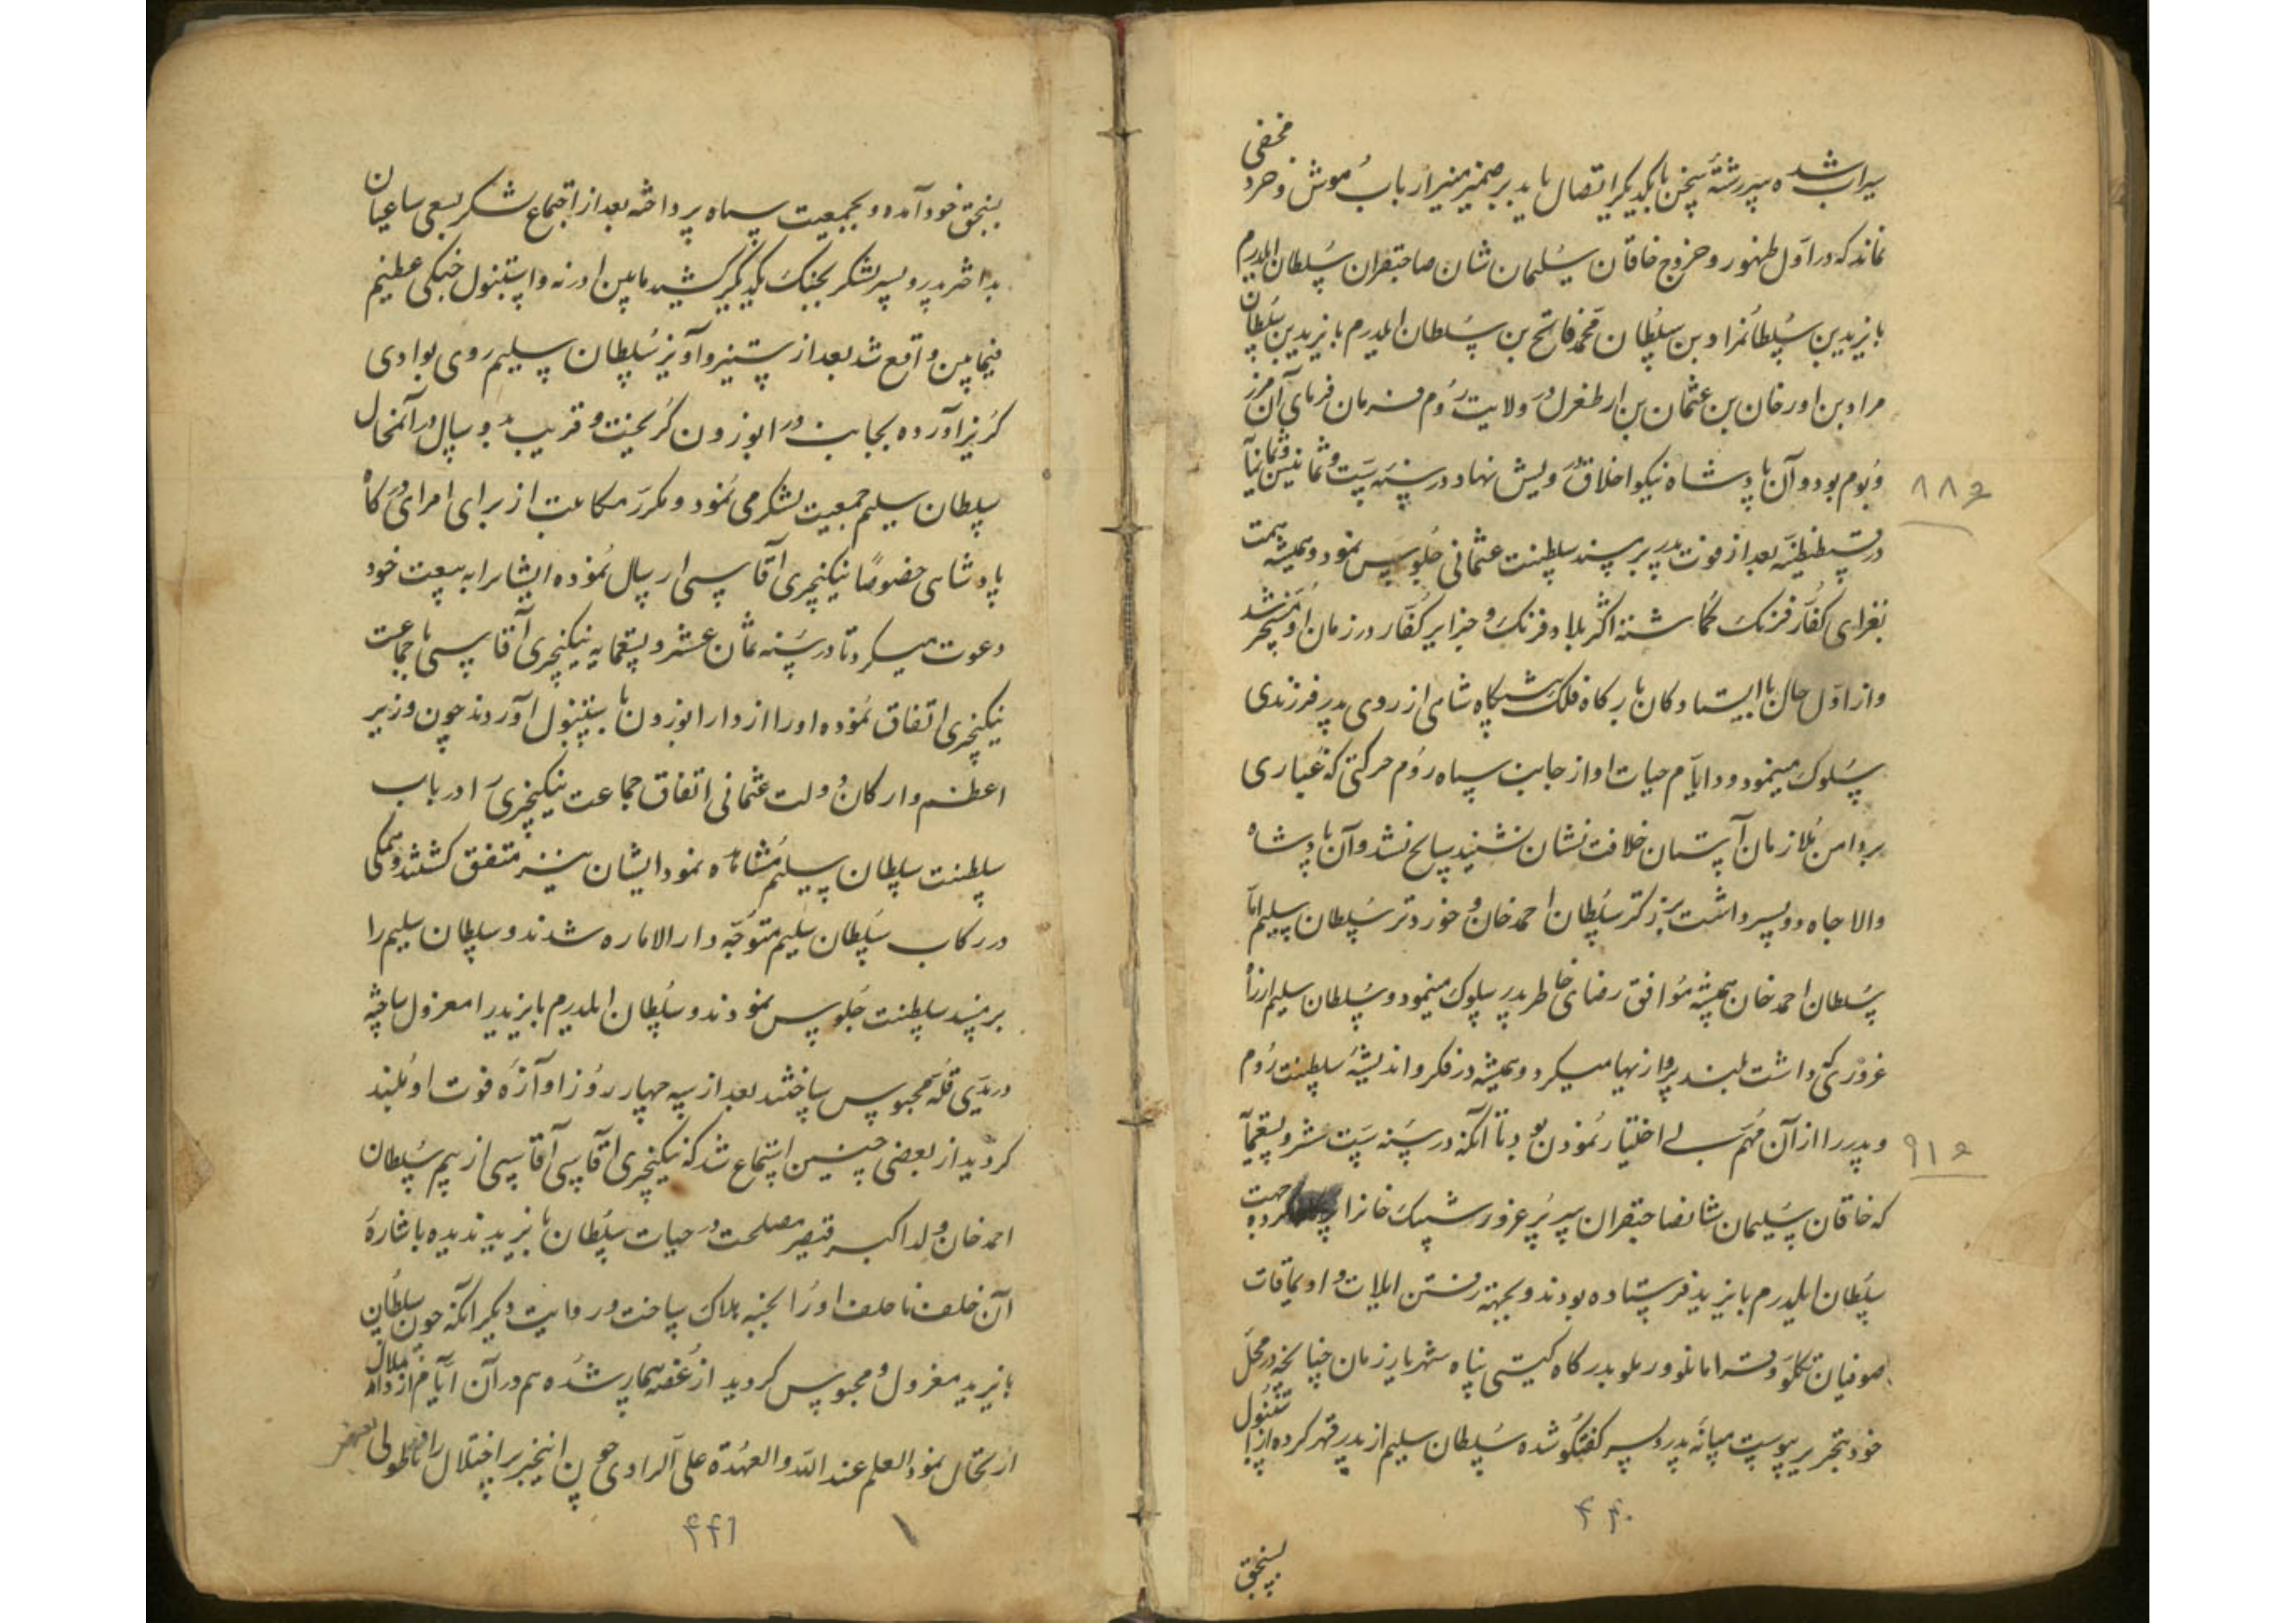 سیراب شده سررشتهٔ سخن بایکدیگر اتصال یابد بر ضمیر منیر ارباب هوش و خرد مخفی
نماند که در اول ظهور و خروج خاقان سلیمان شان صاحبقران سلطان ایلدرم
بایزید بن سلطانمراد بن سلطان محمد فاتح بن سلطان ایلدرم بایزید بن سلطان
مراد بن اورخان بن عثمان بن ارطغرل در ولایت روم فرمان فرمای آن مرز
و بوم بود و آن پادشاه نیکو اخلاق درویش نهاد در سنه ست و ثمانین و ثمانمایه
۸۸۶
در قسطنطنیه بعد از فوت پدر بر مسند سلطنت عثمانی جلوس نمود و همیشه همت
بغزای کفار فرنک کماشته اکثر بلاد فرنک و جزایر کفار در زمان او مسخر شد
و از اول حال با ایستادکان بارکاه فلک پیشکاه شاهی از روی پدر فرزندی
سلوک مینمود و در ایام حیات او از جانب سپاه روم حرکتی که غباری
بر دامن ملازمان آستان خلافت نشان نشیند سانح نشد و آن پادشاه
والاجاه دو پسر داشت بزرکتر سلطان احمد خان و خوردتر سلطان سلیم اما
سلطان احمد خان همیشه موافق رضای خاطر پدر سلوک مینمود و سلطان سلیم از راه
غروری که داشت بلند پروازیها میکرد و همیشه در فکر و اندیشهٔ سلطنت روم
و پدر را از آن مهم بی اختیار نمودن بود تا آنکه در سنه ست عشر و تسعمایه
۹۱۶
که خاقان سلیمان شان صاحبقران سر پر غرور شیبک خانرا کرده جهت
سلطان ایلدرم بایزید فرستاده بودند و بجهته رفتن ایلات و اویماقات
صوفیان تکلو و امانلو و رملو بدرکاه کیتی پناه شهریار زمان چنانچه در محل
خود بتحریر پیوست میانه پدر و پسر کفتکو شده سلطان سلیم از پدر قهر کرده از استنبول
۴۴۰
بسنجق
بسنجق خود آمده و بجمعیت سپاه پرداخته بعد از اجتماع لشکر بسعی ساعیان
بداختر پدر و پسر لشکر بجنک یکدیکر کشیده مابین ادرنه و استنبول جنکی عظیم
فیمابین واقع شد بعد از ستیز و آویز سلطان سلیم روی بوادی
کریز آورده بجانب در ابوزون کریخت و قریب بدو سال در آنمحال
سلطان سلیم جمعیت لشکر می نمود و مکرر مکاتیب از برای امرای درکاه
پادشاهی خصوصاً نیکنچری آقاسی ارسال نموده ایشانرا به بیعت خود
دعوت میکرد تا در سنه ثمان عشر و تسعمایه نیکنچری آقاسی با جماعت
نیکنچری اتفاق نموده او را از دارابوزون باستنبول آوردند چون وزیر
اعظم و ارکان دولت عثمانی اتفاق جماعت نیکنچری را در باب
سلطنت سلطان سلیم مشاهده نمود ایشان نیز متفق کشتند و همکی
در رکاب سلطان سلیم متوجه دارالاماره شدند و سلطان سلیم را
بر مسند سلطنت جلوس نمودند و سلطان ایلدرم بایزید را معزول ساخته
در یدی قله محبوس ساختند بعد از سه چهار روز آوازه فوت او بلند
کردید از بعضی چنین استماع شد که نیکنچری آقاسی از بیم سلطان
احمد خان ولد اکبر قیصر مصلحت در حیات سلطان بایزید ندیده باشارهٔ
آن خلف ناخلف او را بخبه هلاک ساخت و روایت دیکر آنکه چون سلطان
بایزید معزول و محبوس کردید از غصه بیمار شده هم در آن ایام از دار ملال
ارتحال نمود العلم عند الله و العهدة علی الراوی چون اینخبر پر اختلال
۴۴۱